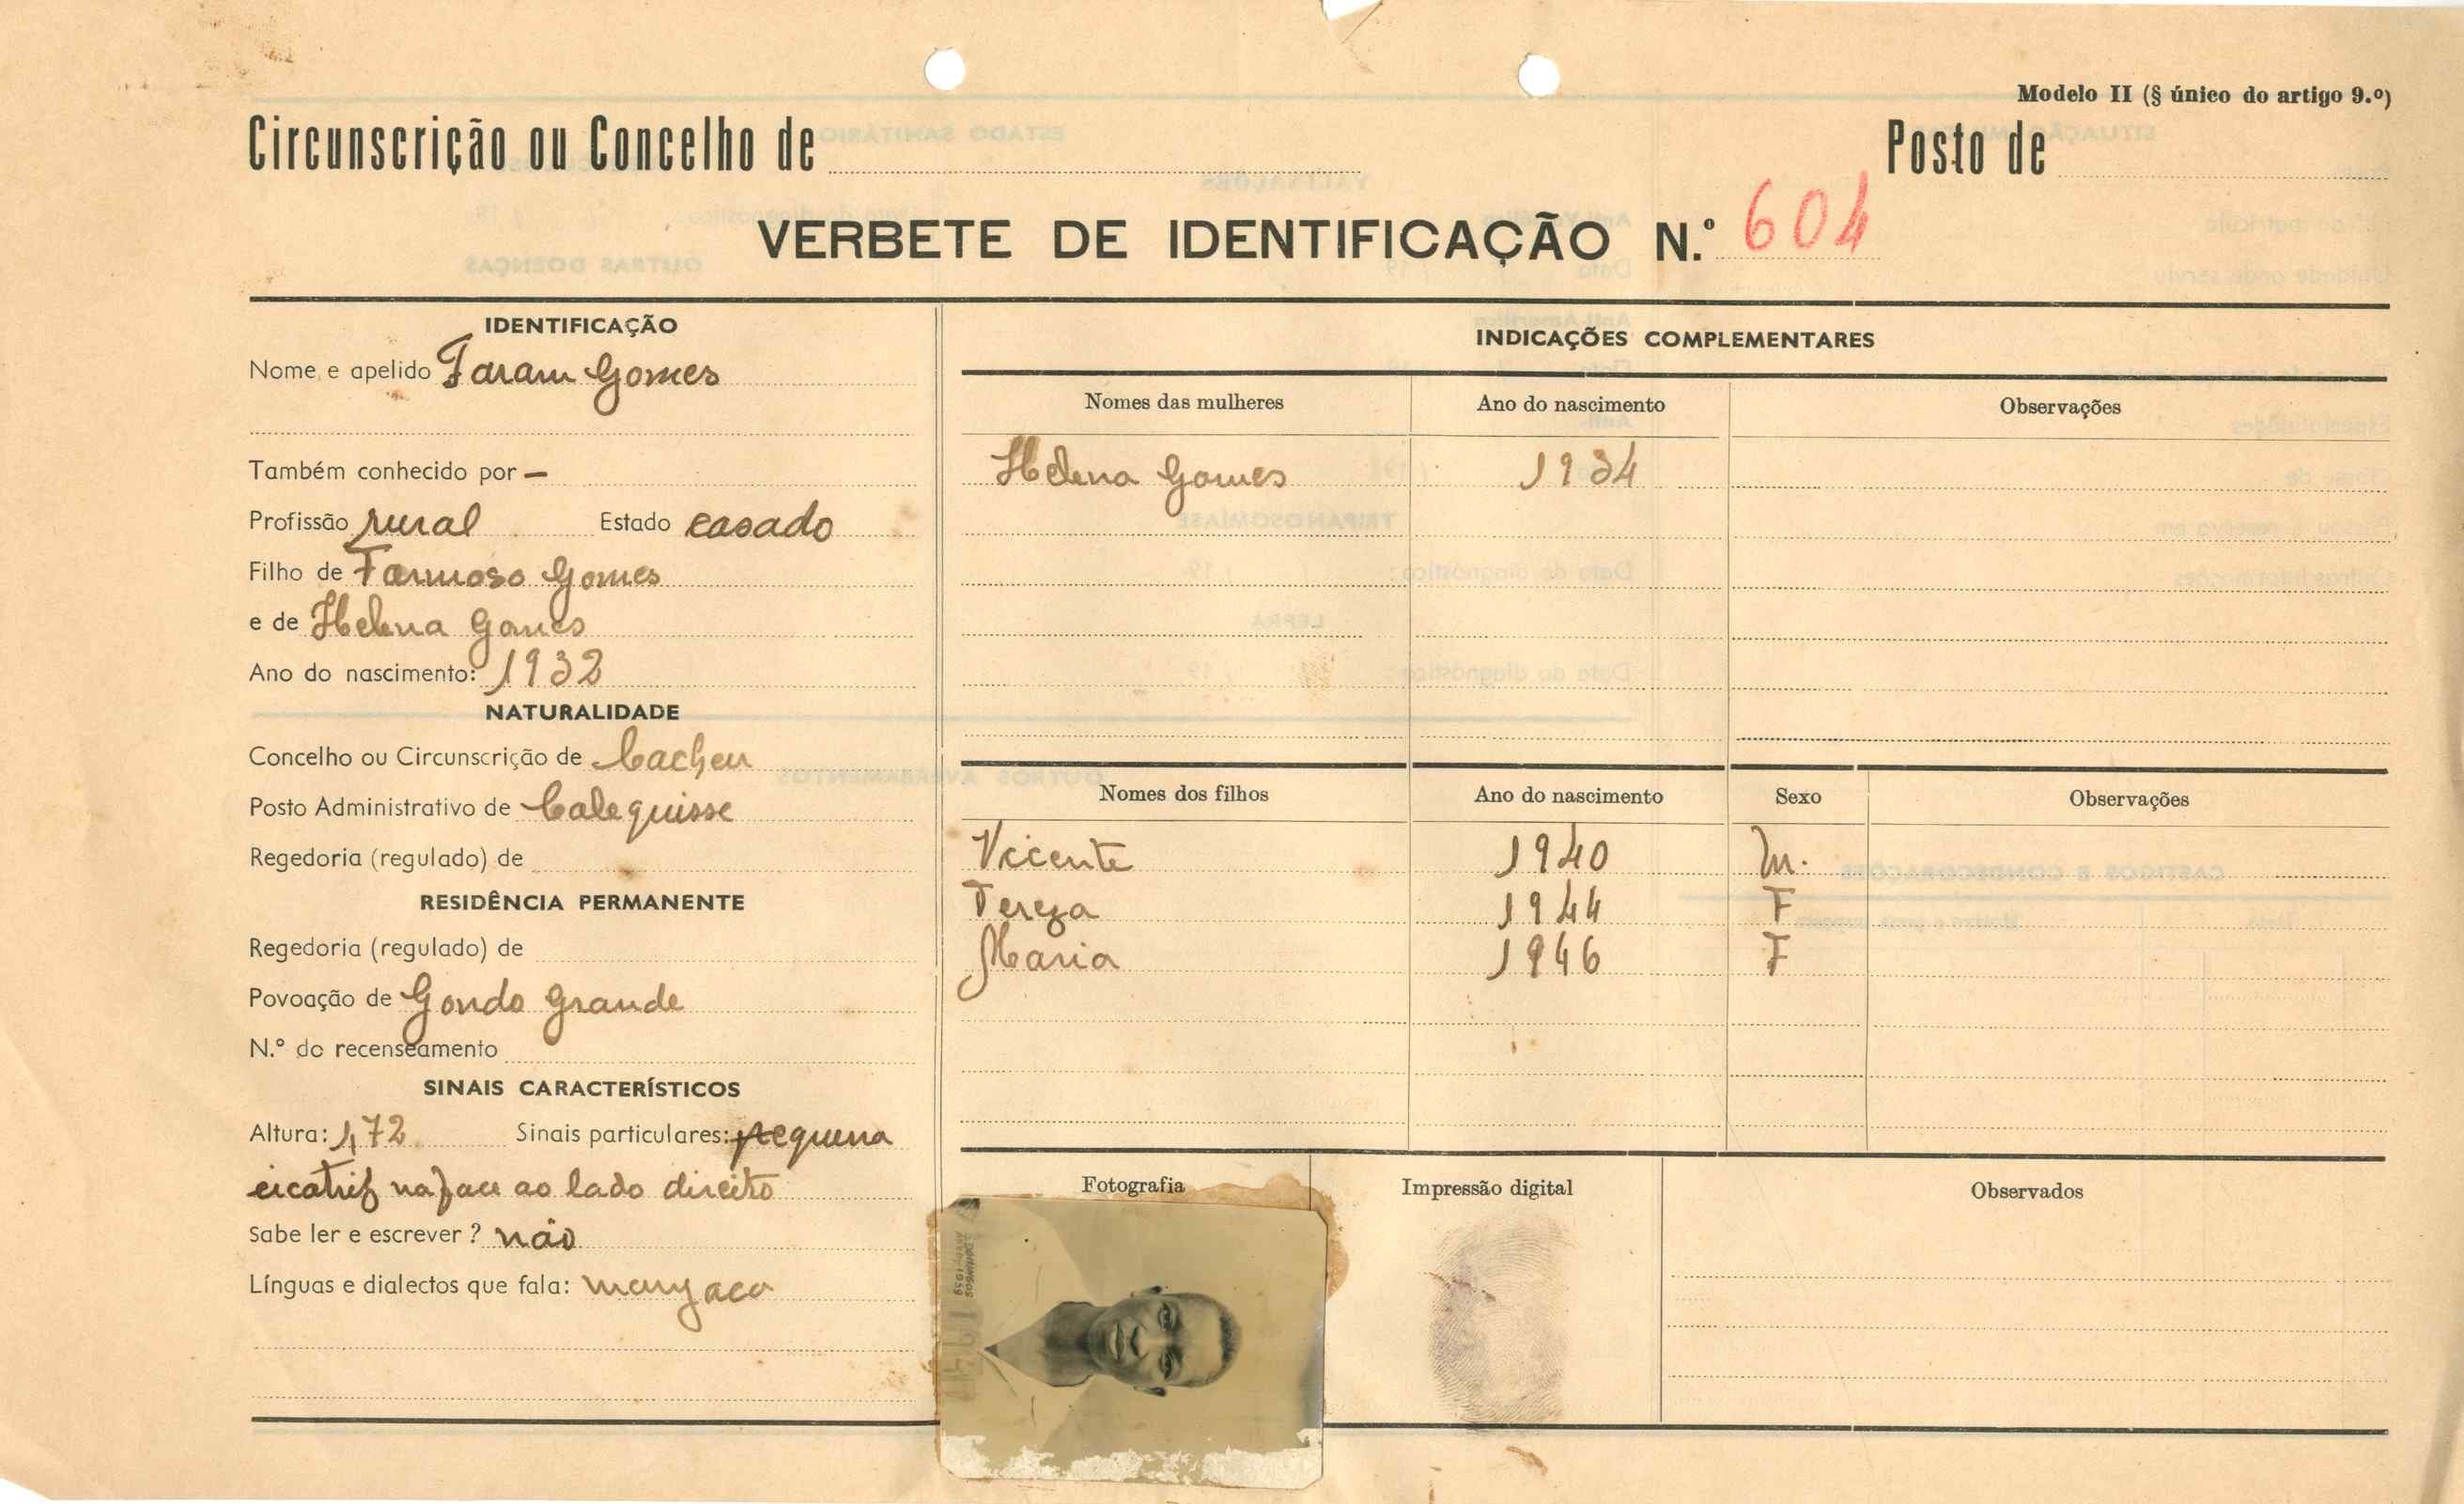 Modelo II (§ único do artigo 9.º)
Circunscrição ou Concelho de
Posto de
VERBETE DE IDENTIFICAÇÃO N.º 604
IDENTIFICAÇÃO
Nome e apelido Faram Gomes
Também conhecido por —
Profissão rural Estado casado
Filho de Formoso Gomes
e de Helena Gomes
Ano do nascimento: 1932
NATURALIDADE
Concelho ou Circunscrição de Cacheu
Posto Administrativo de Calequisse
Regedoria (regulado) de
RESIDÊNCIA PERMANENTE
Regedoria (regulado) de
Povoação de Gondo Grande
N.º do recenseamento
SINAIS CARACTERÍSTICOS
Altura: 1,72 Sinais particulares: pequena
cicatriz na face ao lado direito
Sabe ler e escrever? não
Línguas e dialectos que fala: manjaco
INDICAÇÕES COMPLEMENTARES
Nomes das mulheres Ano do nascimento Observações
Helena Gomes 1934
Nomes dos filhos Ano do nascimento Sexo Observações
Vicente 1940 M.
Tereza 1944 F
Maria 1946 F
Fotografia Impressão digital Observados